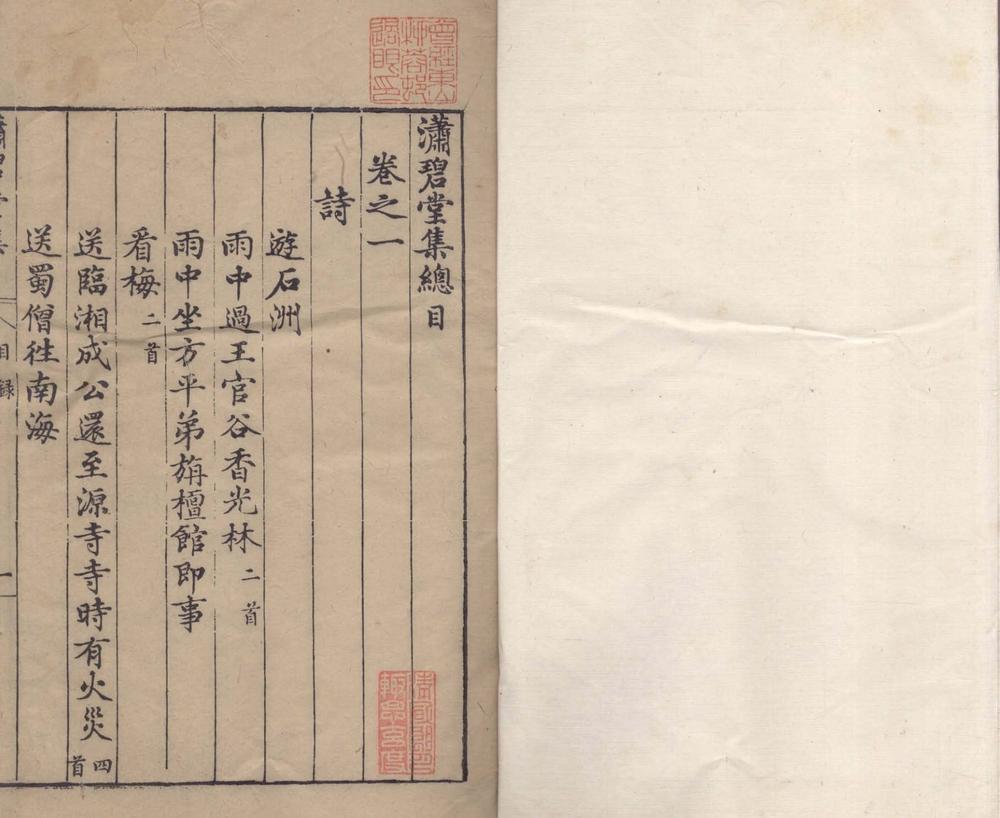 瀟碧堂集總目
卷之一
詩
遊石洲
雨中過王官谷香光林二首
雨中坐方平弟旃檀館即事
看梅二首
送臨湘成公還至源寺寺時有火災四首
送蜀僧徃南海
目録
一